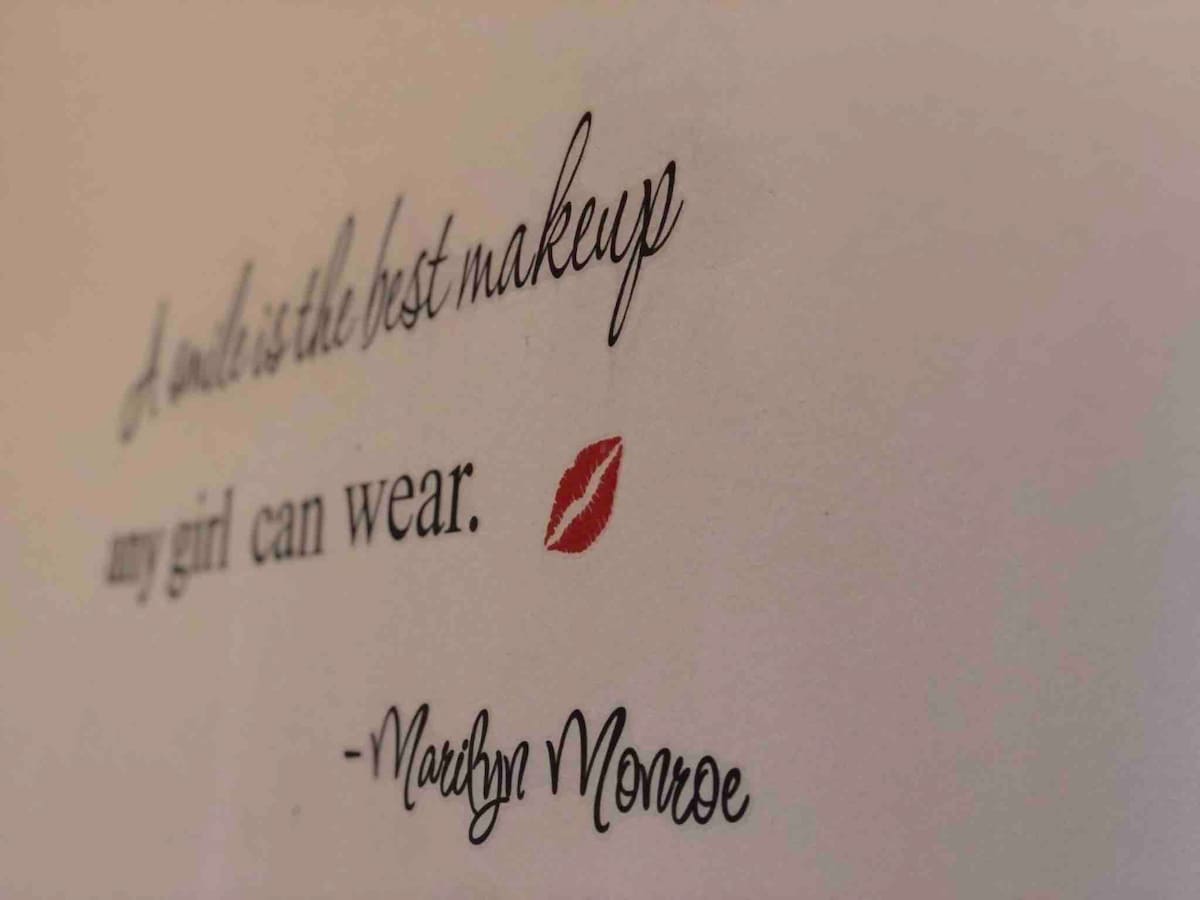 A smile is the best makeup
any girl can wear.
-Marilyn Monroe